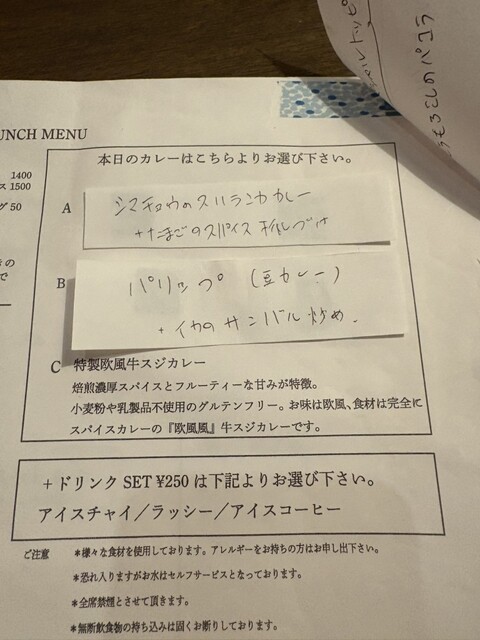 とうもろこしのパコラ
UNCH MENU
1400
ス 1500
グ 50
きの
で
本日のカレーはこちらよりお選び下さい。
A
シマチョウのスリランカカレー
+たまごのスパイス
B
パリップ (豆カレー)
+イカのサンバル炒め
C 特製欧風牛スジカレー
焙煎濃厚スパイスとフルーティーな甘みが特徴。
小麦粉や乳製品不使用のグルテンフリー。お味は欧風、食材は完全に
スパイスカレーの『欧風風』牛スジカレーです。
+ドリンク SET ¥250 は下記よりお選び下さい。
アイスチャイ／ラッシー／アイスコーヒー
ご注意
*様々な食材を使用しております。アレルギーをお持ちの方はお申し出下さい。
*恐れ入りますがお水はセルフサービスとなっております。
*全席禁煙とさせて頂きます。
*無断飲食物の持ち込みは固くお断りしております。